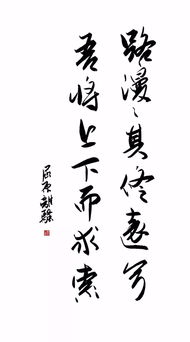 路漫漫其修遠兮
吾将上下而求索
屈原離騷